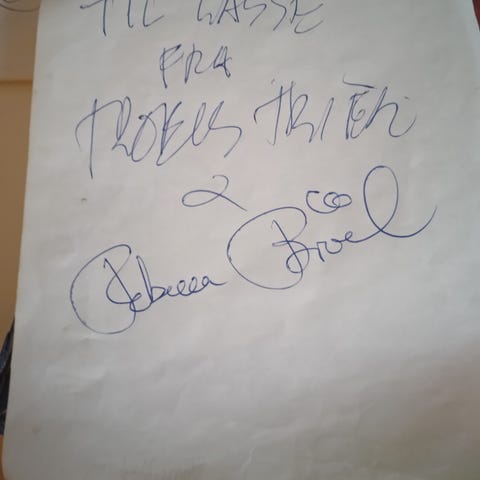 TIL LASSE
FRA
TROELS TRIER
&
Rebecca Brüel